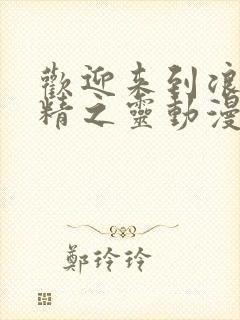 歡迎来到浪
精之靈動漫
鄭玲玲